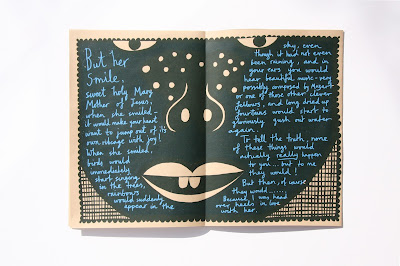 But her
Smile,
sweet holy Mary
Mother of Jesus,
when she smiled
it would make your heart
want to jump out of its
own ribcage with joy!
When she smiled,
birds would
immediately
start singing
in the trees,
rainbows
would suddenly
appear in the
sky, even
though it had not even
been raining, and in
your ears you would
hear beautiful music - very
possibly composed by Mozart
or one of those other clever
fellows, and long dried up
fountains would start to
gloriously gush out water
again.
To tell the truth, none
of these things would
actually really happen
to you... but to me
they would!
But then, of course
they would......
Because, I was head
over heels in love
with her.